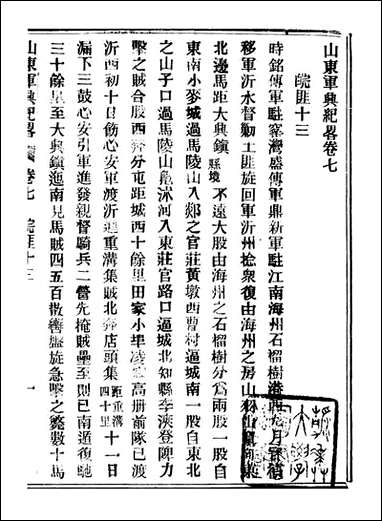 山東軍興紀畧卷七
皖匪十三
時銘傳軍駐窯灣盛傳軍鼎新軍駐江南海州石榴樹
移軍沂水督勦土匪旋回軍沂州捻衆復由海州之房山
北邊馬距大興鎮縣境不遠大股由海州之石榴樹分爲兩股一股自
東南小麥城過馬陵山入郯之官莊黃墩西曹村逼城南一股自東北
之山子口過馬陵山亂沭河入東莊官路口逼城北知縣李溁登陴力
擊之賊合股西奔分屯距城西十餘里田家小埠凌家高册前隊已渡
沂西初十日飭心安軍渡沂進重溝集賊北奔店頭集距重溝四十里十一日
漏下三鼓心安引軍進發親督騎兵二營先掩賊壘至則已南遁復馳
三十餘里至大興鎮迤南見馬賊四五百散轡盤旋急擊之斃數十馬
山東軍興紀畧 卷七 皖匪十三 一